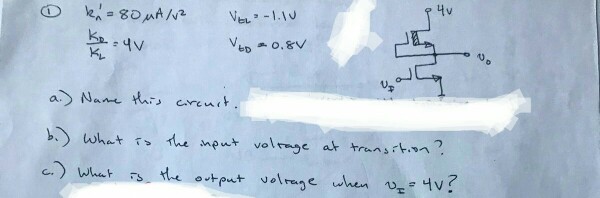 ① kn' = 80 μA/V² VtL = -1.1V 4V
KD/KL = 4V VtD = 0.8V vo
vI
a.) Name this circuit.
b.) What is the input voltage at transition?
c.) What is the output voltage when vI = 4V?